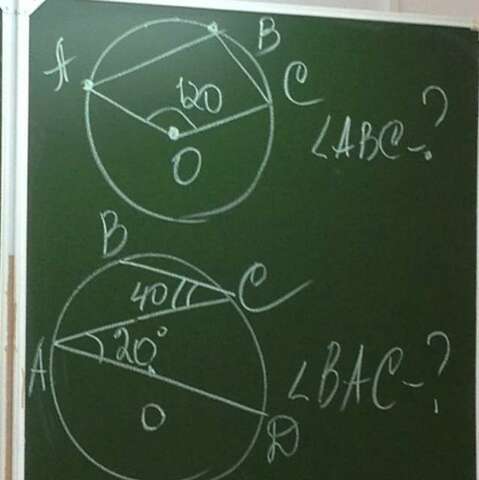 B
A
C
120
O
∠ABC-?
B
40
C
A
20°
O
D
∠BAC-?